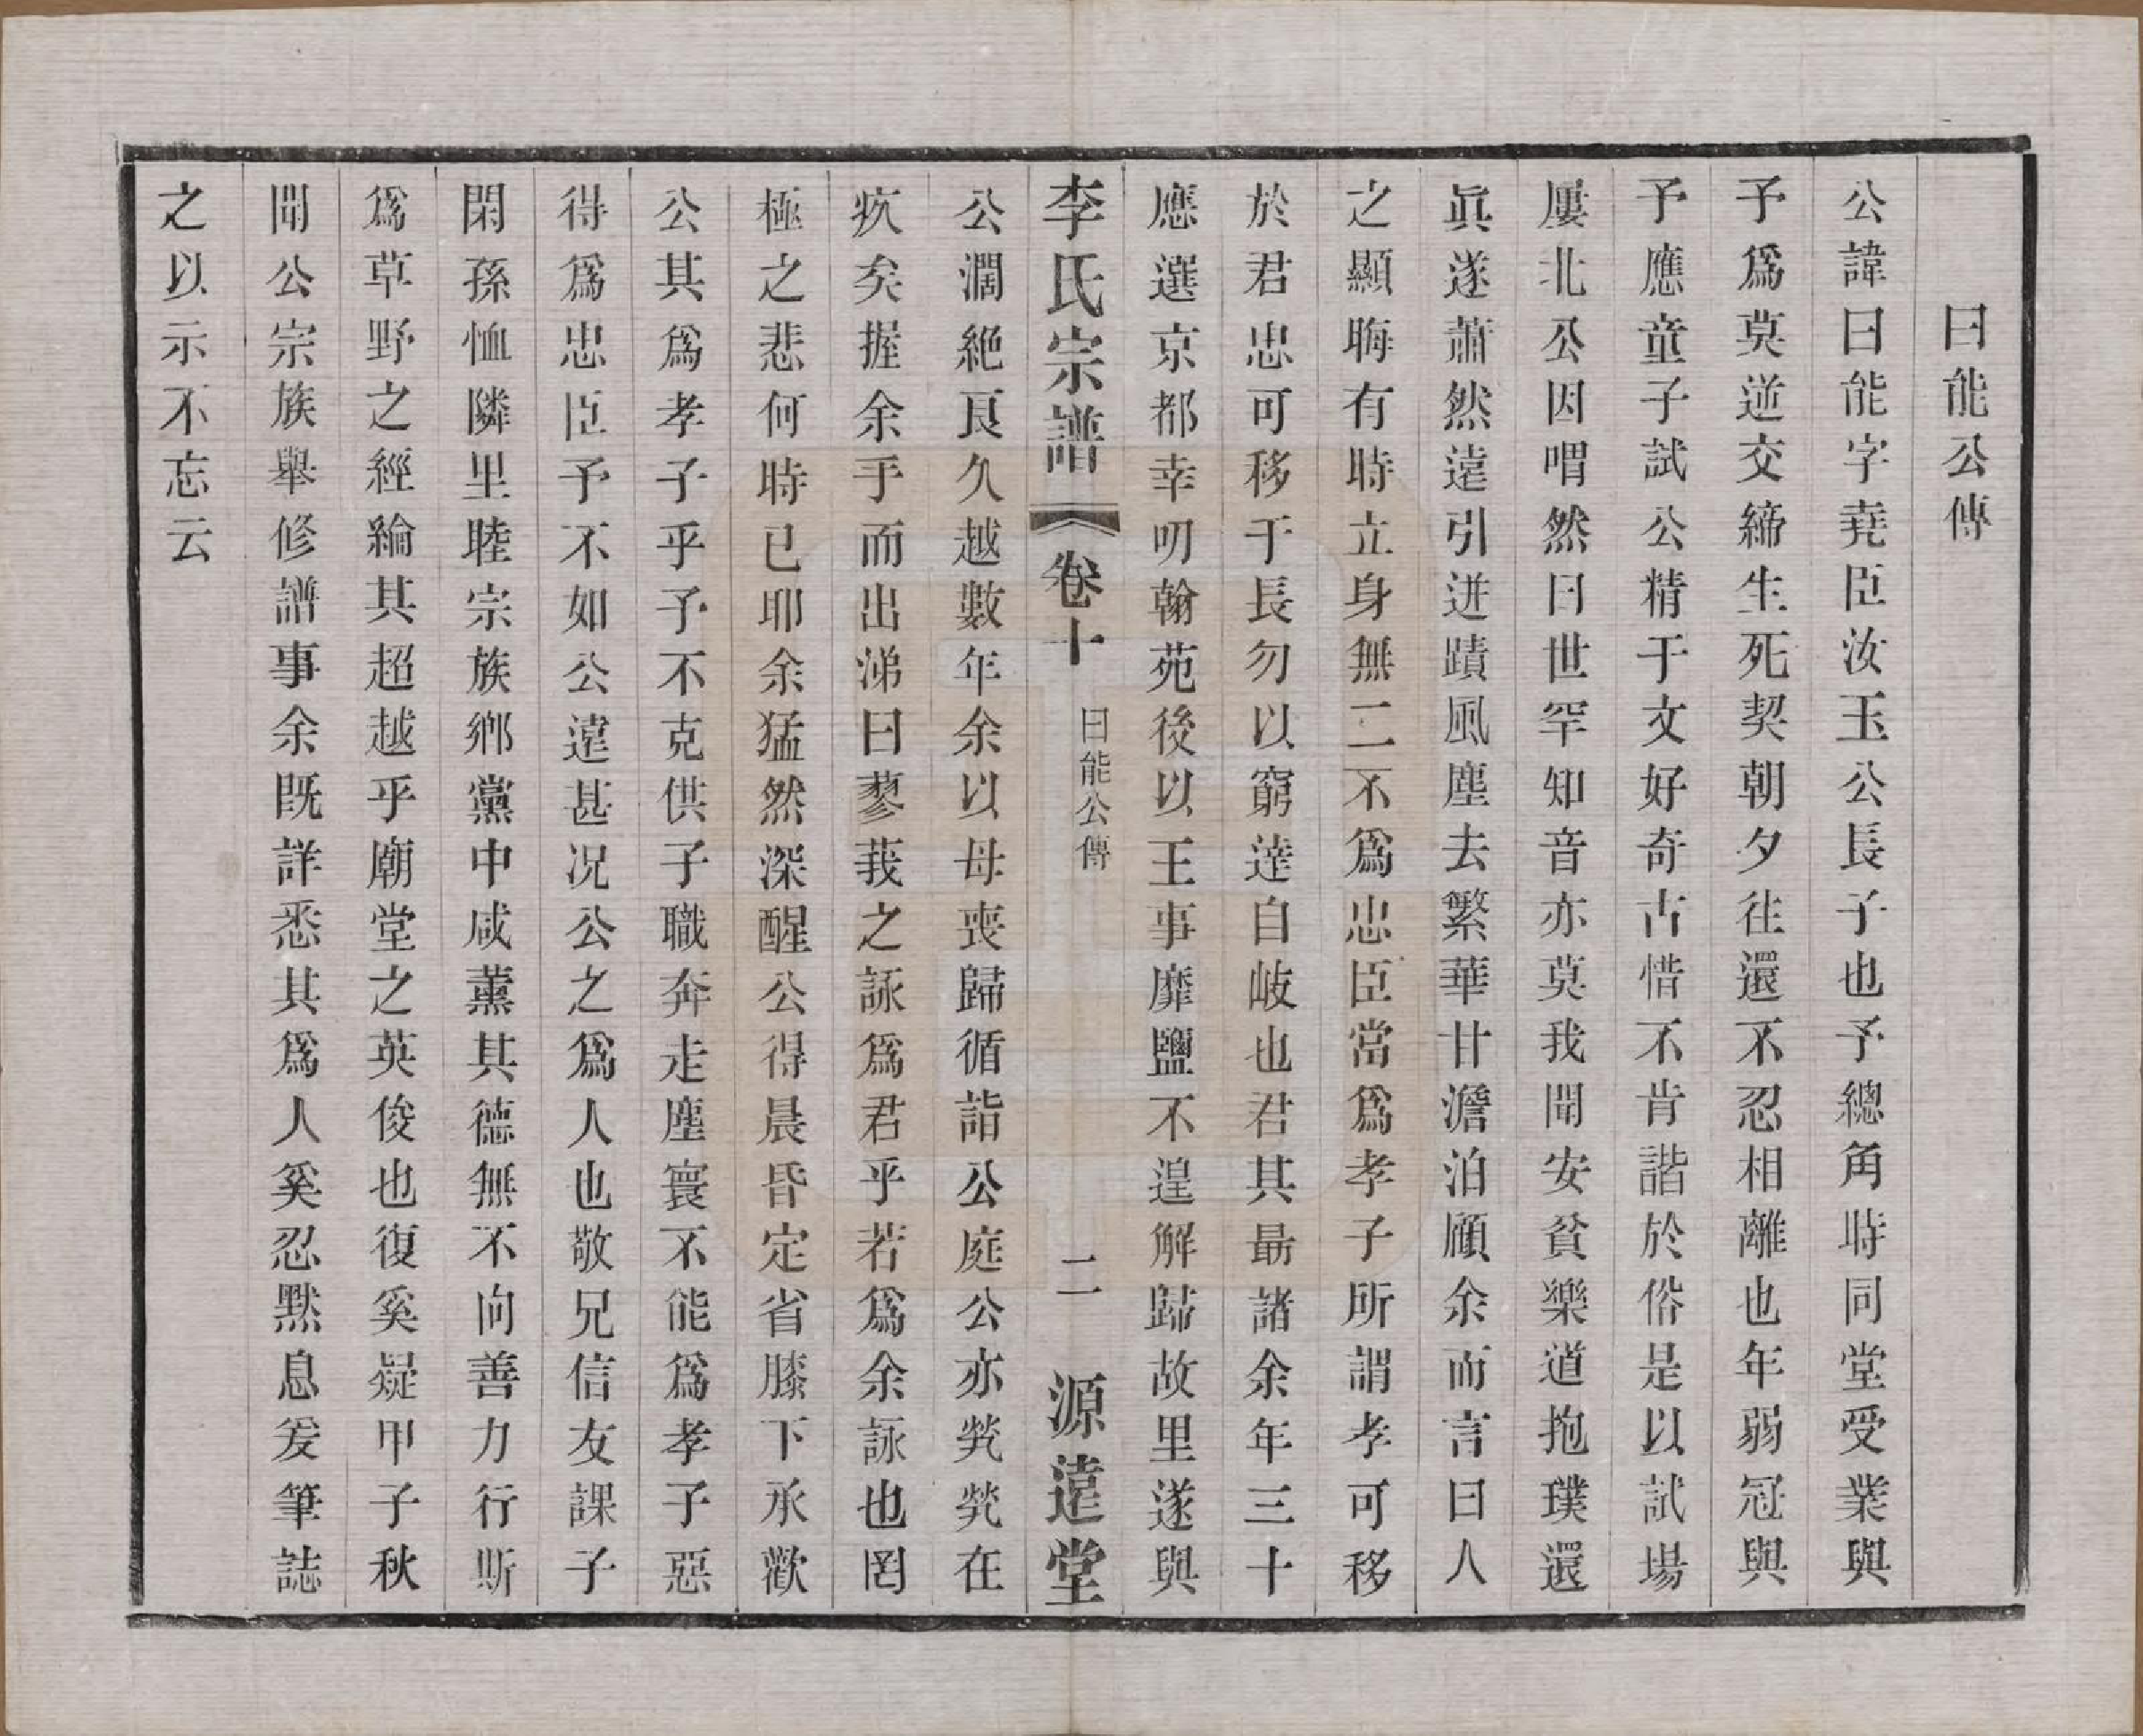 曰能公傳
公諱曰能字堯臣汝玉公長子也予總角時同堂受業與
予爲莫逆交締生死契朝夕往還不忍相離也年弱冠與
予應童子試公精于文好奇古惜不肯諧於俗是以試場
屢北公因喟然曰世罕知音亦莫我聞安貧樂道抱璞還
眞遂蕭然遠引迸蹟風塵去繁華甘澹泊顧余而言曰人
之顯晦有時立身無二不爲忠臣當爲孝子所謂孝可移
於君忠可移于長勿以窮達自岐也君其勗諸余年三十
應選京都幸叨翰苑後以王事靡鹽不遑解歸故里遂與
李氏宗譜 卷十 曰能公傳 二 源遠堂
公濶絶良久越數年余以母喪歸循詣公庭公亦煢煢在
疚矣握余手而出涕曰蓼莪之詠爲君乎若爲余詠也罔
極之悲何時已耶余猛然深醒公得晨昏定省膝下承歡
公其爲孝子乎予不克供子職奔走塵寰不能爲孝子惡
得爲忠臣予不如公遠甚况公之爲人也敬兄信友課子
閑孫恤隣里睦宗族鄉黨中咸薰其德無不向善力行斯
爲草野之經綸其超越乎廟堂之英俊也復奚疑甲子秋
聞公宗族舉修譜事余既詳悉其爲人奚忍默息爰筆誌
之以示不忘云